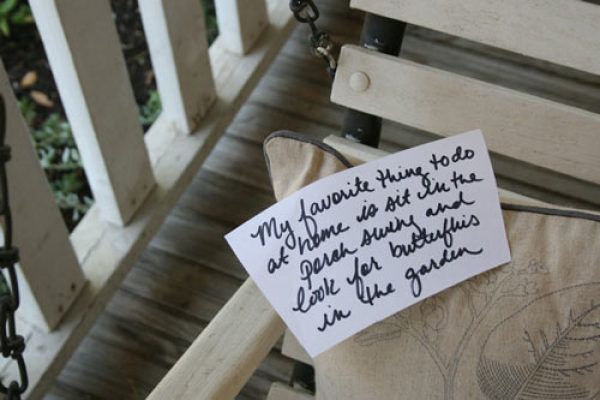 My favorite thing to do
at home is sit in the
porch swing and
look for butterflies
in the garden